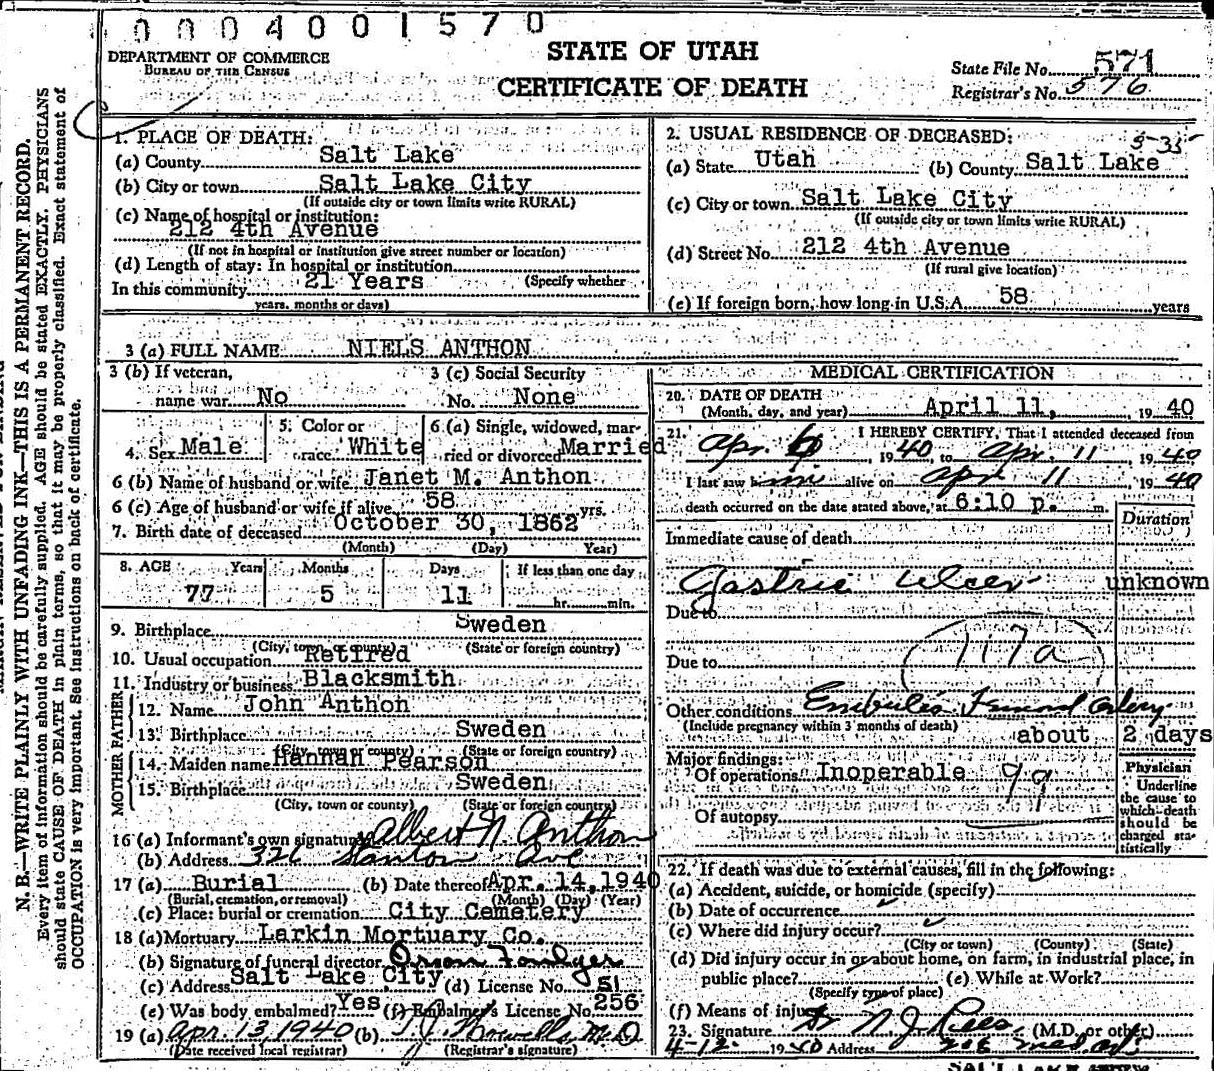 0004001570
DEPARTMENT OF COMMERCE
BUREAU OF THE CENSUS
STATE OF UTAH
CERTIFICATE OF DEATH
State File No. 571
Registrar's No. 576
N. B.—WRITE PLAINLY WITH UNFADING INK—THIS IS A PERMANENT RECORD.
Every item of information should be carefully supplied. AGE should be stated EXACTLY. PHYSICIANS
should state CAUSE OF DEATH in plain terms, so that it may be properly classified. Exact statement of
OCCUPATION is very important. See instructions on back of certificate.
1. PLACE OF DEATH:
(a) County Salt Lake
(b) City or town Salt Lake City
(If outside city or town limits write RURAL)
(c) Name of hospital or institution:
212 4th Avenue
(If not in hospital or institution give street number or location)
(d) Length of stay: In hospital or institution
(Specify whether
In this community 21 Years
years, months or days)
2. USUAL RESIDENCE OF DECEASED:
(a) State Utah (b) County Salt Lake
(c) City or town Salt Lake City
(If outside city or town limits write RURAL)
(d) Street No. 212 4th Avenue
(If rural give location)
(e) If foreign born, how long in U.S.A. 58 years
3 (a) FULL NAME NIELS ANTHON
3 (b) If veteran, name war No
3 (c) Social Security No. None
4. Sex Male
5. Color or race White
6 (a) Single, widowed, married or divorced Married
6 (b) Name of husband or wife Janet M. Anthon
6 (c) Age of husband or wife if alive 58 yrs.
7. Birth date of deceased October 30, 1862
(Month) (Day) Year)
8. AGE Years Months Days If less than one day
77 5 11 hr. min.
9. Birthplace Sweden
(City, town or county) (State or foreign country)
10. Usual occupation Retired
11. Industry or business Blacksmith
FATHER
12. Name John Anthon
13. Birthplace Sweden
(City, town or county) (State or foreign country)
MOTHER
14. Maiden name Hannah Pearson
15. Birthplace Sweden
(City, town or county) (State or foreign country)
16 (a) Informant's own signature Albert N Anthon
(b) Address 326 Stanton Ave
17 (a) Burial (b) Date thereof Apr. 14, 1940
(Burial, cremation, or removal) (Month) (Day) (Year)
(c) Place: burial or cremation City Cemetery
18 (a) Mortuary Larkin Mortuary Co.
(b) Signature of funeral director Orson Foulger
(c) Address Salt Lake City (d) License No. 51
(e) Was body embalmed? Yes (f) Embalmer's License No. 256
19 (a) Apr. 13, 1940 (b) M.D.
(Date received local registrar) (Registrar's signature)
MEDICAL CERTIFICATION
20. DATE OF DEATH
(Month, day, and year) April 11, 1940
21. I HEREBY CERTIFY, That I attended deceased from
Apr. 1940, to Apr. 11 1940
I last saw him alive on Apr 11, 1940
death occurred on the date stated above, at 6:10 p. m.
Duration
Immediate cause of death
Gastric ulcer unknown
Due to
117a
Due to
Other conditions Embulis Femoral Artery
(Include pregnancy within 3 months of death) about 2 days
Major findings:
Of operations Inoperable 99
Of autopsy
Physician
Underline
the cause to
which death
should be
charged sta-
tistically
22. If death was due to external causes, fill in the following:
(a) Accident, suicide, or homicide (specify)
(b) Date of occurrence
(c) Where did injury occur?
(City or town) (County) (State)
(d) Did injury occur in or about home, on farm, in industrial place, in
public place? (e) While at Work?
(Specify type of place)
(f) Means of injury
23. Signature Dr N J Rees (M.D. or other)
4-12 1940 Address